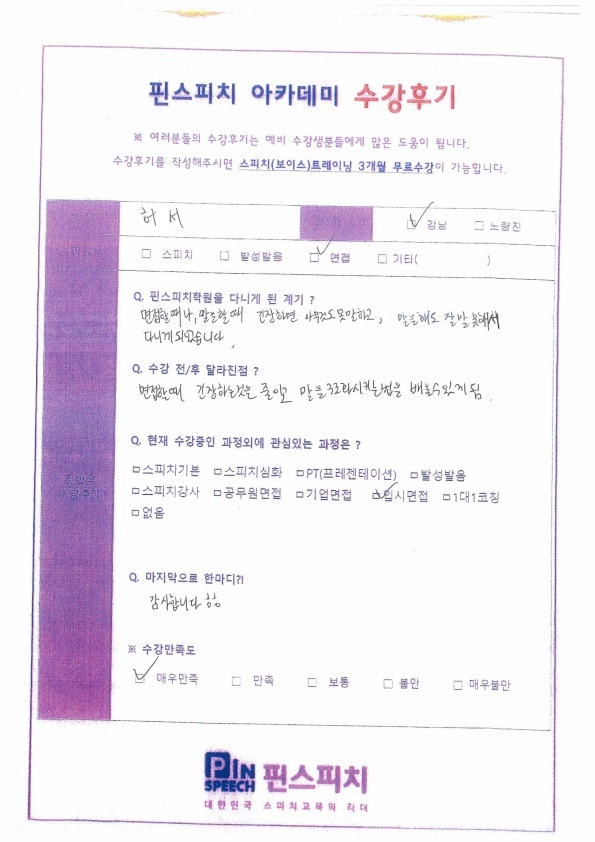 핀스피치 아카데미 수강후기
※ 여러분들의 수강후기는 예비 수강생분들에게 많은 도움이 됩니다.
수강후기를 작성해주시면 스피치(보이스)트레이닝 3개월 무료수강이 가능합니다.
허 서 강남 노량진
스피치 발성발음 면접 기타( )
Q. 핀스피치학원을 다니게 된 계기 ?
면접할때나, 말을할때 긴장하면 아무것도못말하고, 말을해도 잘말못해서
다니게되었습니다.
Q. 수강 전/후 달라진점 ?
면접할때 긴장하는것은 줄이고 말을 구조화시키는법을 배울수있게됨.
Q. 현재 수강중인 과정외에 관심있는 과정은 ?
스피치기본 스피치심화 PT(프레젠테이션) 발성발음
스피치강사 공무원면접 기업면접 입시면접 1대1코칭
없음
Q. 마지막으로 한마디?!
감사합니다 ㅎㅎ
※ 수강만족도
매우만족 만족 보통 불만 매우불만
PIN SPEECH 핀스피치
대한민국 스피치교육의 리더